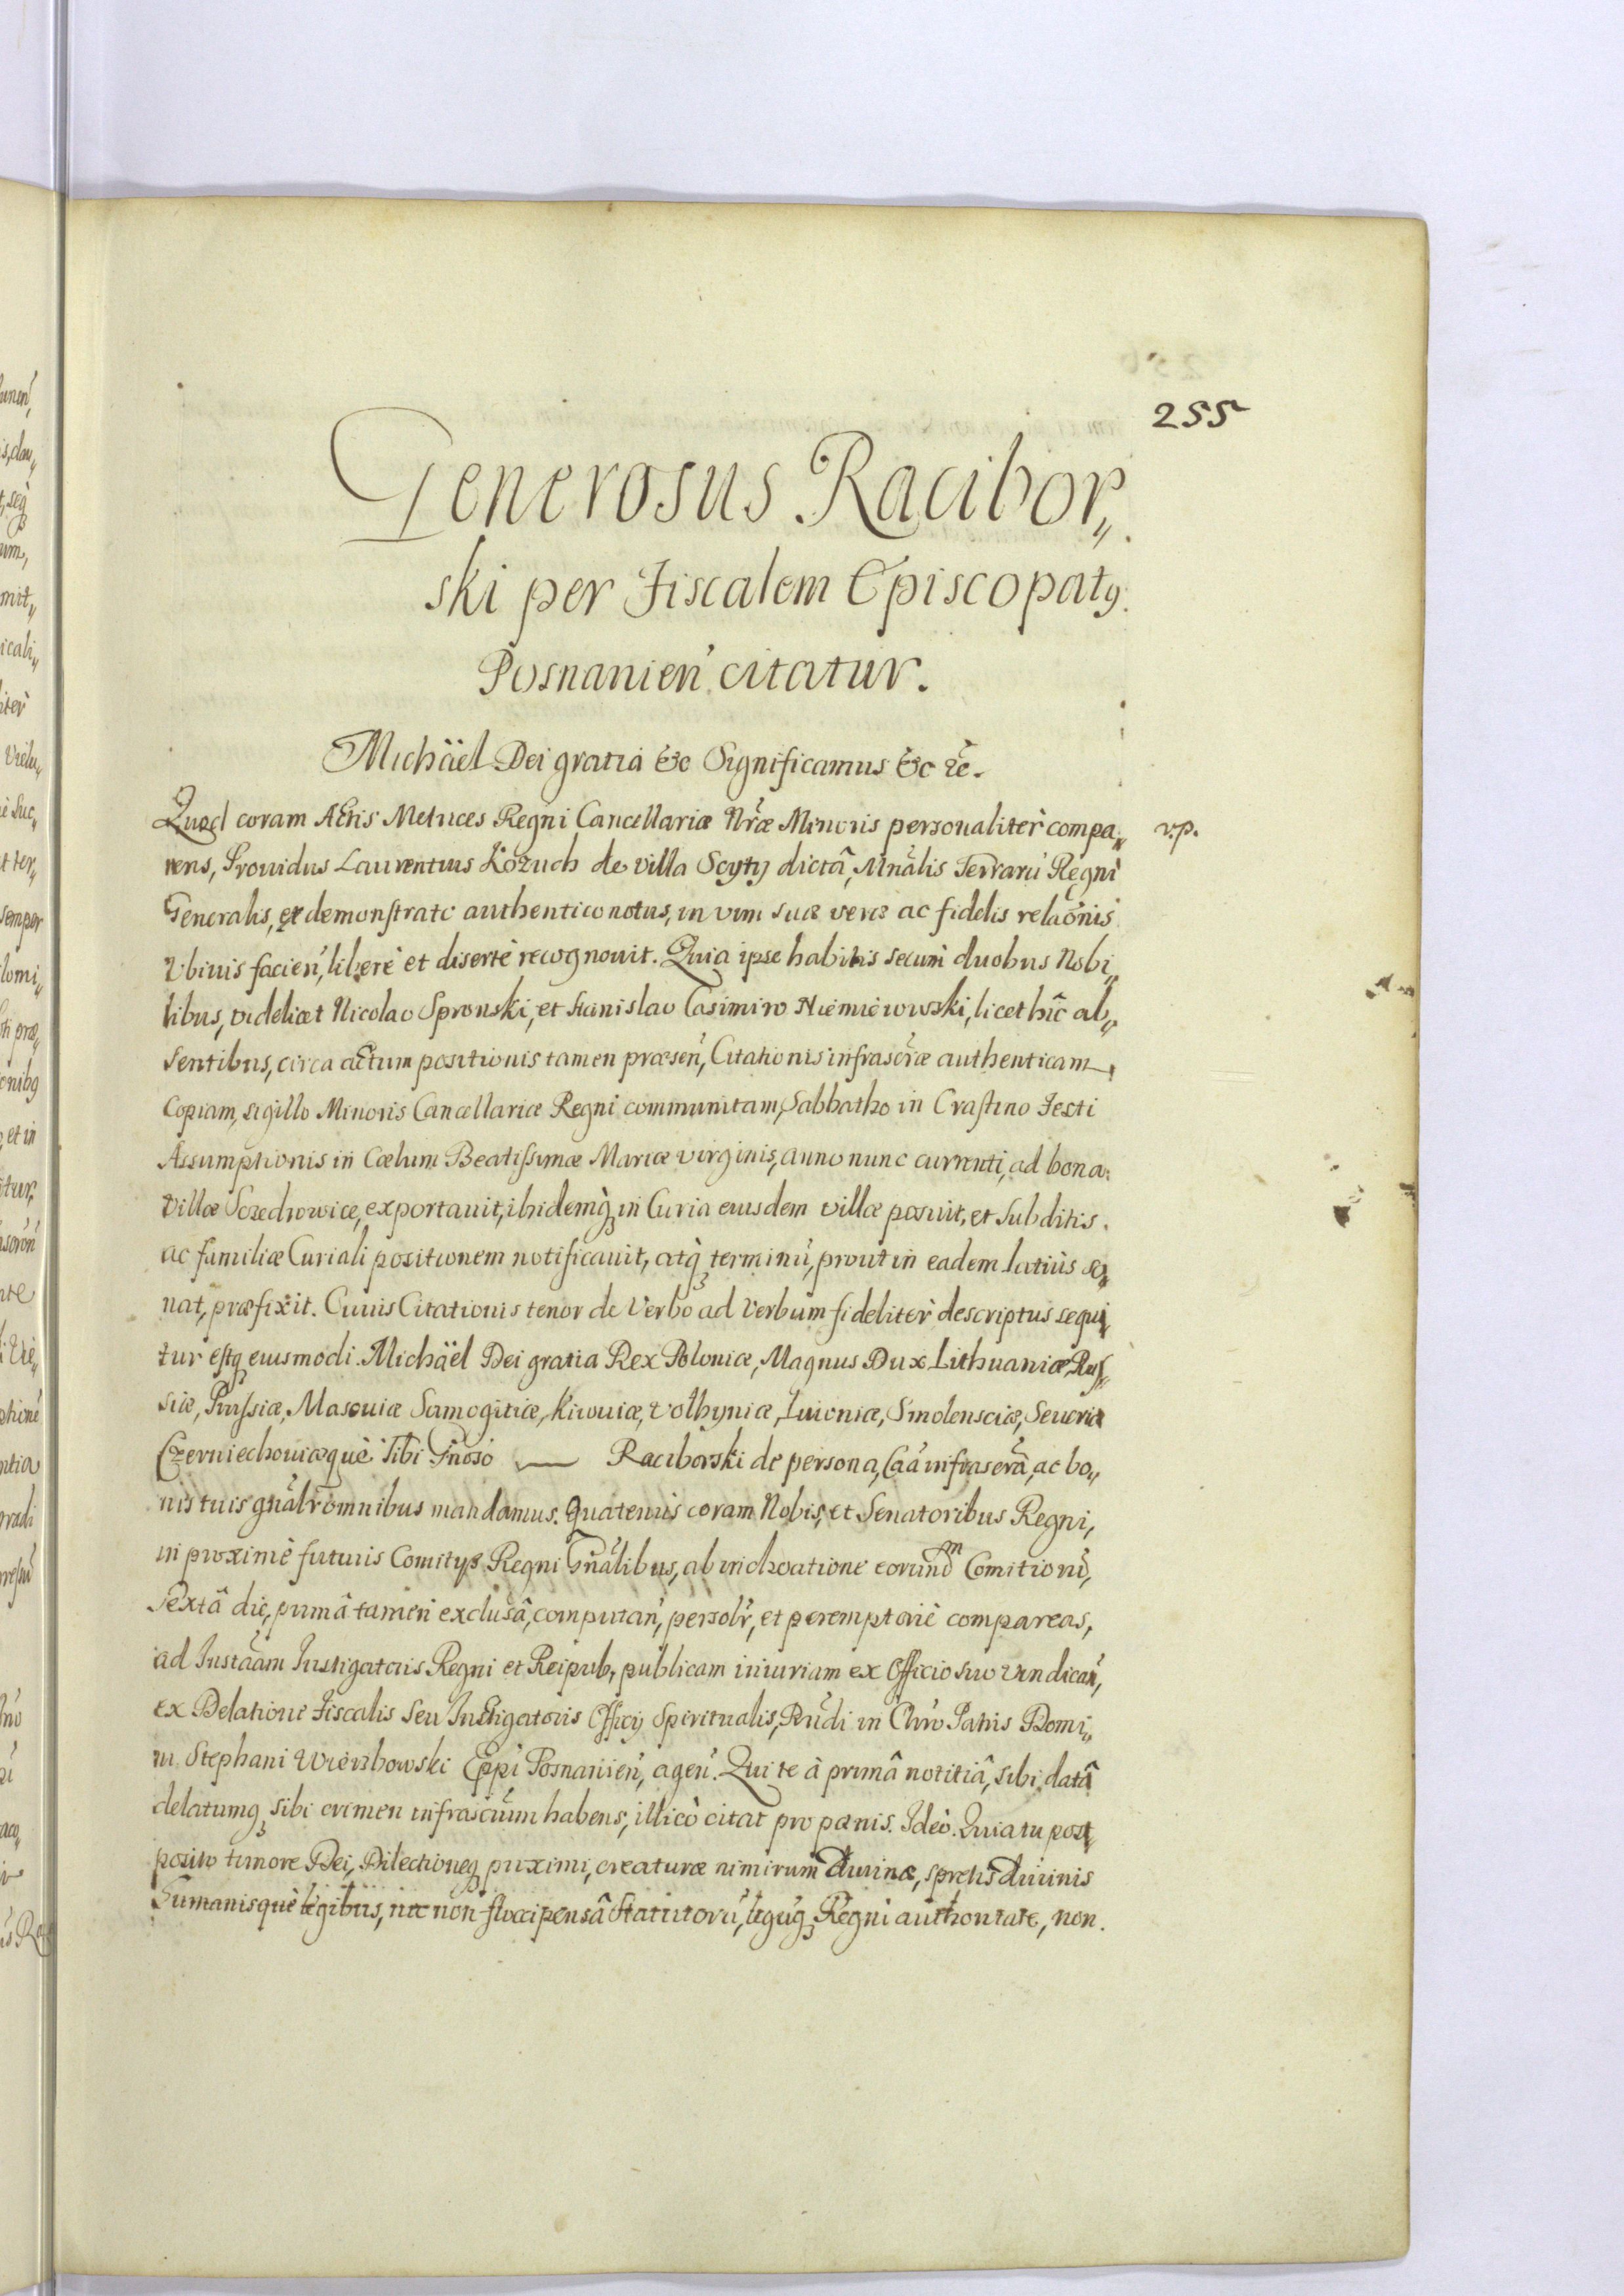 255
Generosus Racibor„
ski per Fiscalem Episcopatꝰ
Posnanien̄ citatur.
Michäel Dei gratia &c Significamus &c &c.
Quod coram Actis Metrices Regni Cancellariæ Nr̃æ Minoris personaliter compa„ v.p.
rens, Prouidus Laurentius Kozuch de villa Scyty dictâ, Mnãlis Terrarũ Regni
Generalis, ex demonstrato authentico notus, in vim suæ veræ ac fidelis relaõnis
Vbiuis facien̄, liberè et disertè recognouit. Quia ipse habitis secum duobus Nobi„
libus, videlicet Nicolao Spronski, et Stanislao Casimiro Niemieiowski, licet hîc ab„
sentibus, circa actum positionis tamen præsen̄, Citationis infrascr̃æ authenticam
Copiam, sigillo Minoris Cancellariæ Regni communitam, Sabbatho in Crastino Festi
Assumptionis in Cælum Beatissimæ Mariæ virginis, anno nunc currenti, ad bona
Villæ Szedrowice, exportauit, ibidemq̃ in Curia eiusdem villæ posuit, et Subditis
ac familiæ Curiali positionem notificauit, atq̃ terminũ, prout in eadem latiùs so„
nat, præfixit. Cuius Citationis tenor de Verbo ad Verbum fideliter descriptus sequi„
tur estq̃ eiusmodi. Michäel Dei gratia Rex Poloniæ, Magnus Dux Lithuaniæ, Rus„
siæ, Prussiæ, Masouiæ Samogitiæ, Kiiouiæ, Volhyniæ, Liuoniæ, Smolensciæ, Seueriæ
Czerniechouiæquè Tibi Gnõso — Raciborski de persona, Caã infrascrã, ac bo„
nis tuis gnãlr̃ omnibus mandamus. Quatenus coram Nobis, et Senatoribus Regni,
in proximè futuris Comitijs Regni Gnãlibus, ab inchoatione eorundm Comitiorũ,
Sextâ die, primâ tamen exclusâ, computan̄, persolr̃, et peremptoriè compareas,
ad Instãam Instigatoris Regni et Reipub, publicam iniuriam ex Officio suo vindican̄,
ex Delatione Fiscalis Seu Instigatoris Officij Spiritualis, Rñdi in Chrõ Patris Domi„
ni Stephani Wierzbowski Eppi Posnanien̄, agen̄. Qui te à primâ notitiâ, sibi datâ
delatumq̃ sibi crimen infrascr̃um habens, illicò citat pro pænis. Ideò. Quia tu post„
posito timore Dei, Dilectioneq̃ proximi, creaturæ nimirum Diuinæ, spretis Diuinis
Humanisquè legibus, nec non floccipensâ Statutorũ, legũq̃ Regni authoritate, non